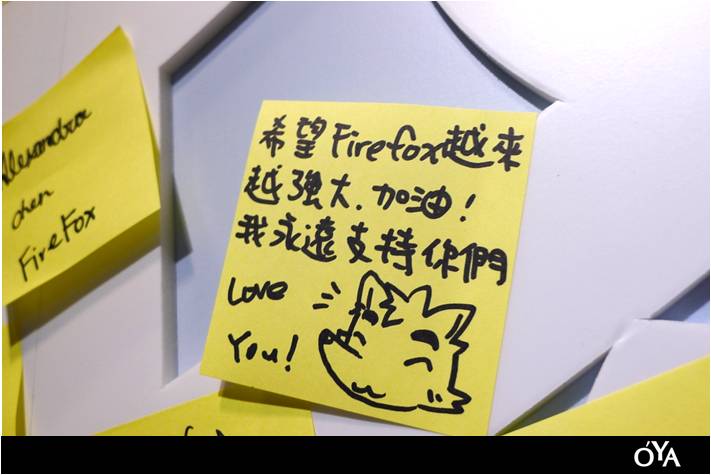 Alexandra
chen
FireFox
希望Firefox越來
越強大.加油!
我永遠支持你們
Love
You!
ÓYA